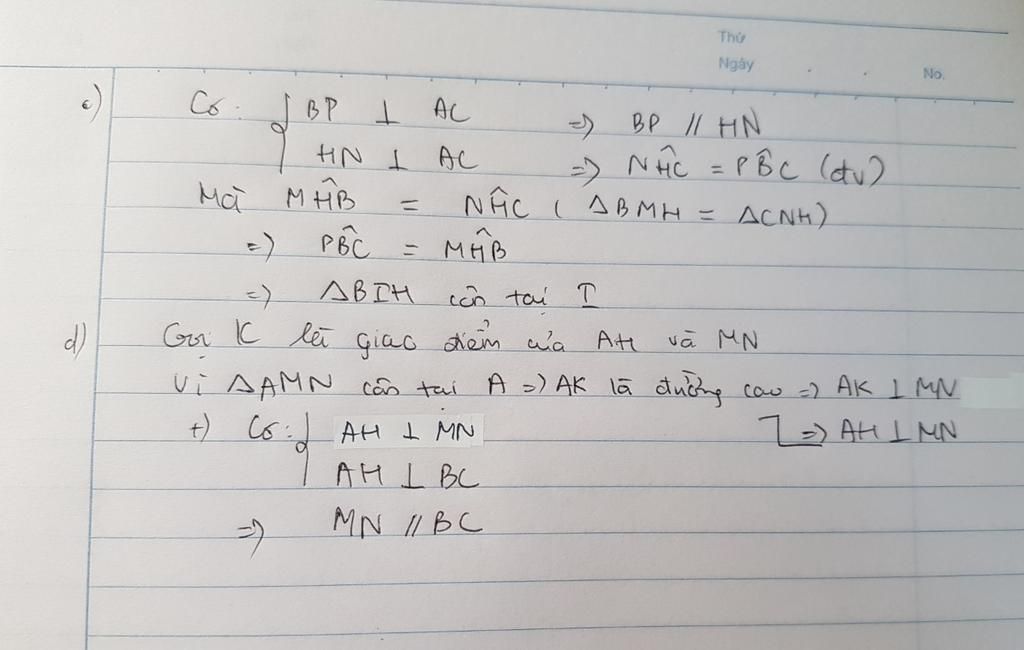 Thứ
Ngày . . No.
c) Có: { BP ⊥ AC => BP // HN
HN ⊥ AC => NĤC = PB̂C (đv)
Mà MĤB = NĤC ( ΔBMH = ΔCNH)
=> PB̂C = MĤB
=> ΔBIH cân tại I
d) Gọi K là giao điểm của AH và MN
Vì ΔAMN cân tại A => AK là đường cao => AK ⊥ MN
+) Có: { AH ⊥ MN => AH ⊥ MN
AH ⊥ BC
=> MN // BC